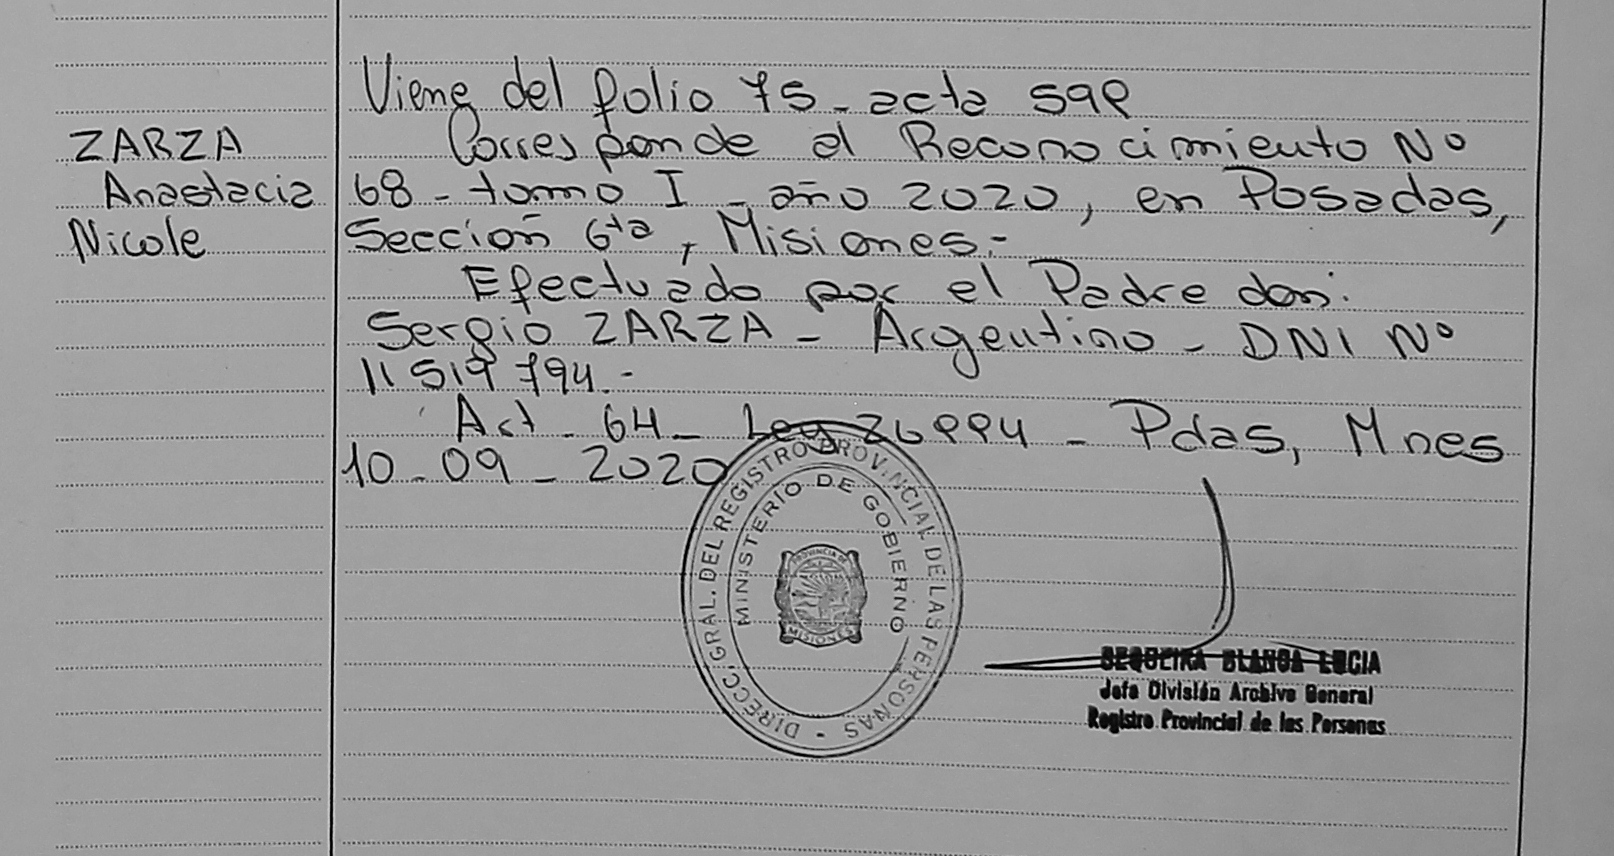 Viene del folio 75 - acta 599
ZARZA
Corresponde al Reconocimiento Nº
Anastacia
68 - tomo I - año 2020, en Posadas,
Nicole
Sección 6ta, Misiones.-
Efectuado por el Padre don:
Sergio ZARZA - Argentino - DNI Nº
11 519 794.-
Art - 64 - Ley 26994 - Pdas, Mnes
10 - 09 - 2020
DIRECC. GRAL. DEL REGISTRO PROVINCIAL DE LAS PERSONAS -
MINISTERIO DE GOBIERNO
PROVINCIA DE
MISIONES
SEQUEIRA BLANCA LUCIA
Jefa División Archivo General
Registro Provincial de las Personas